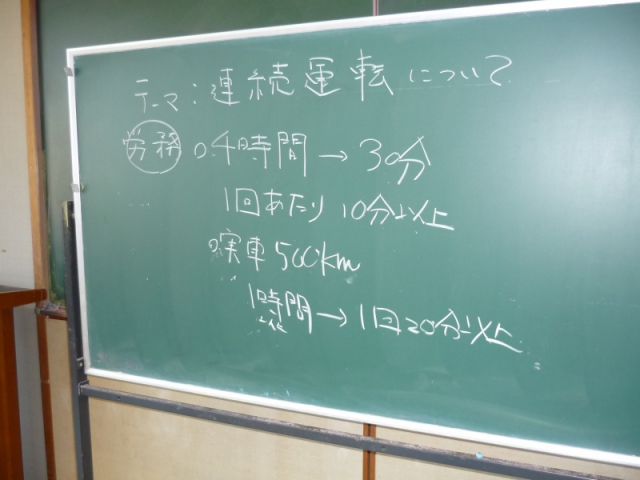 テーマ：連続運転について
労務 0.4時間→30分
1回あたり10分以上
実車500km
1時間→1回20分以上